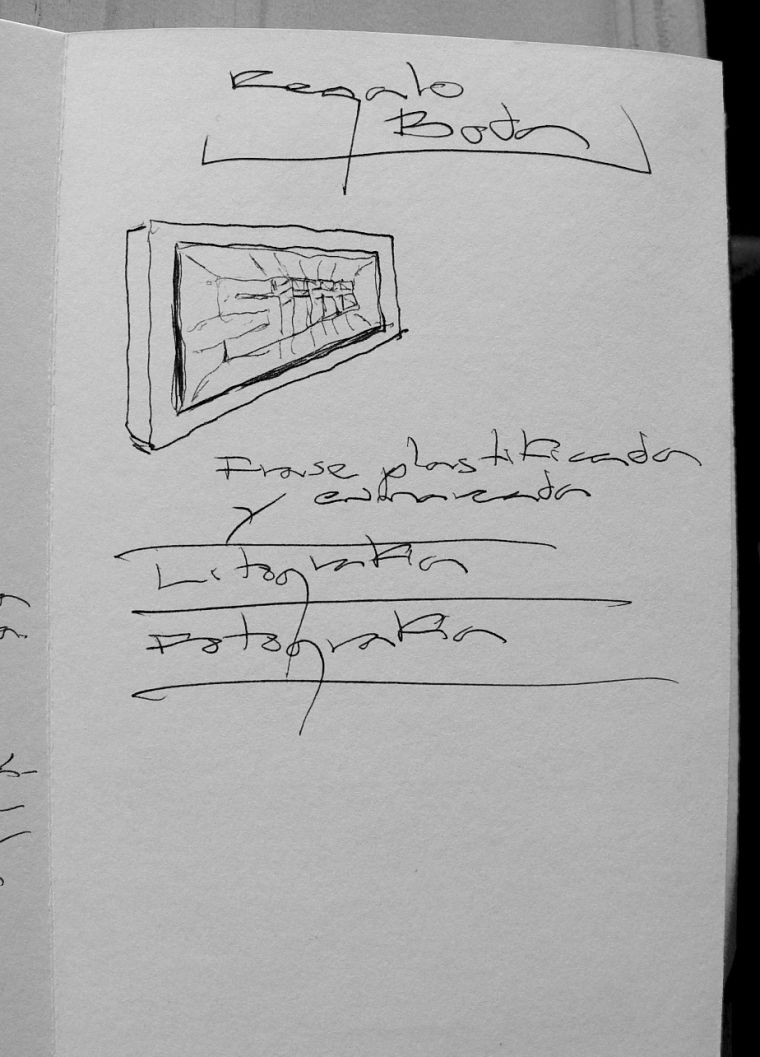 Regalo
Boda
Frase plastificada
y enmarcada
Litografia
Fotografia